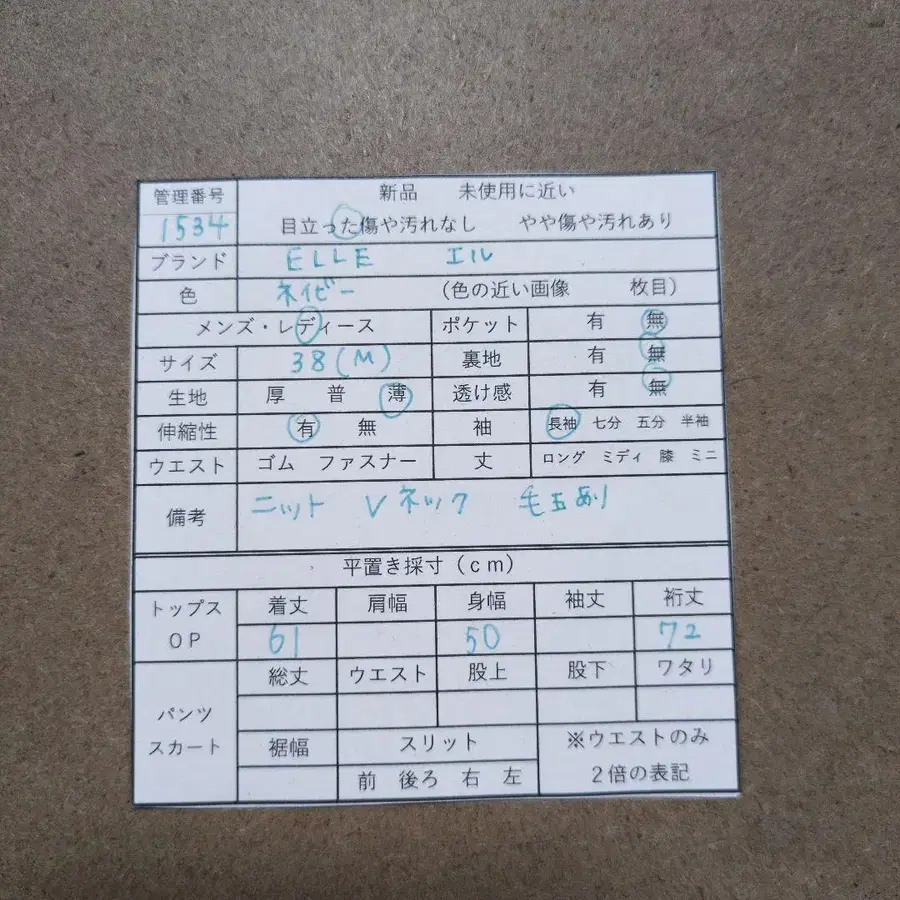 管理番号 新品 未使用に近い
1534 目立った傷や汚れなし やや傷や汚れあり
ブランド ELLE エル
色 ネイビー (色の近い画像 枚目)
メンズ・レディース ポケット 有 無
サイズ 38(M) 裏地 有 無
生地 厚 普 薄 透け感 有 無
伸縮性 有 無 袖 長袖 七分 五分 半袖
ウエスト ゴム ファスナー 丈 ロング ミディ 膝 ミニ
備考 ニット Vネック 毛玉あり
平置き採寸(cm)
トップス 着丈 肩幅 身幅 袖丈 裄丈
OP 61 50 72
総丈 ウエスト 股上 股下 ワタリ
パンツ
スカート 裾幅 スリット ※ウエストのみ
前 後ろ 右 左 2倍の表記